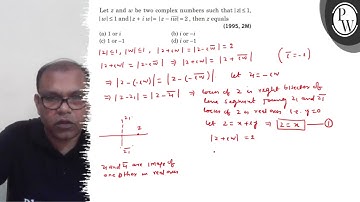 Let z and w be two complex numbers such that |z| ≤ 1,
|w| ≤ 1 and |z + i w| = |z − iw̅| = 2, then z equals
(1995, 2M)
(a) 1 or i (b) i or −i
(c) 1 or −1 (d) i or −1
|z| ≤ 1, |w| ≤ 1, |z+iw| = |z−iw̅| = 2
|z+iw| = |z−iw̅| ⇒ |z+iw| = |z+ (i̅ = −i)
⇒ |z−(−iw)| = |z−(
⇒ |z−z₁| = |z−z̅₁| ⇒ locus of z is right bisector of
line segment joining z₁ and z̅₁
locus of z is real axis i.e. y=0
let z = x+iy ⇒ z = x ①
|z+iw| = 2
z₁
z
z̅₁
z₁ and z̅₁ are image of
one other in real axis